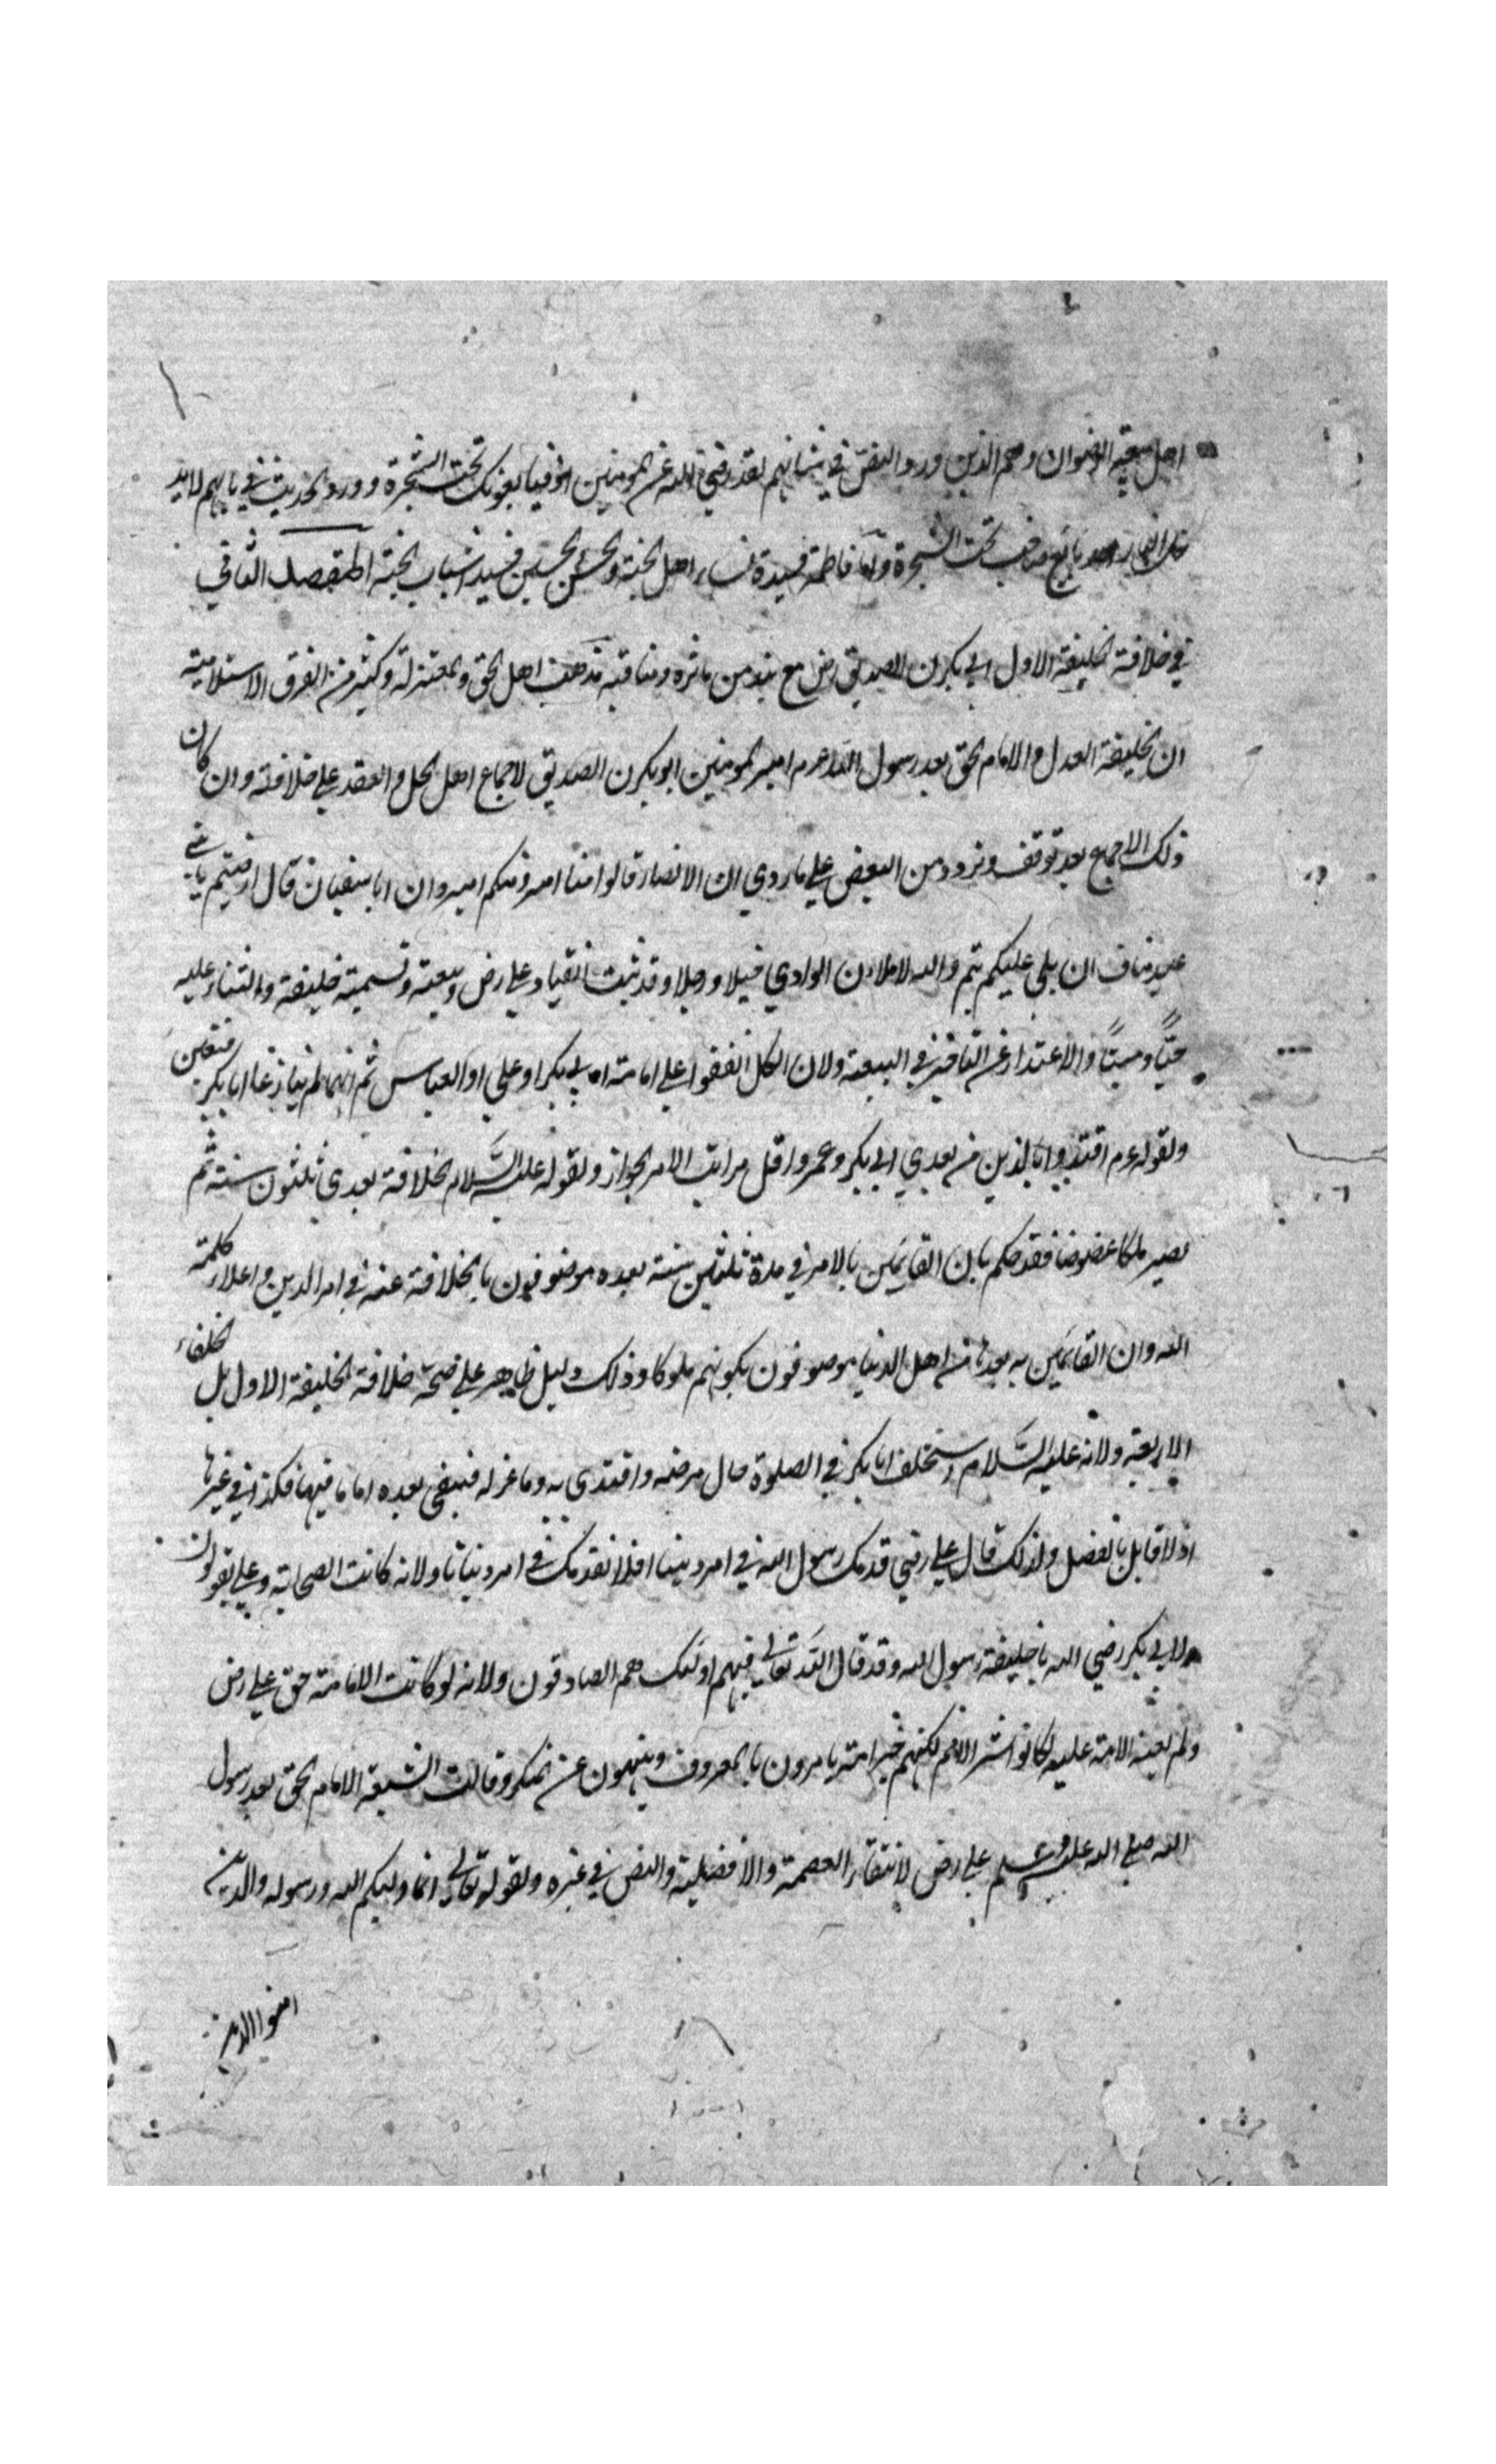 اهل بيعة الرضوان وهم الذين ورد النص في شانهم لقد رضي الله عن المومنين اذ يبايعونك تحت الشجرة وورد الحديث في بابهم لا يد
خل النار احد بايع تحت الشجرة واما فاطمة فسيدة نساء اهل الجنة والحسن والحسين فسيدا شباب الجنة المقصد الثاني
في خلافة الخليفة الاول ابي بكرن الصديق رض مع نبذ من ماثره ومناقبه مذهب اهل الحق والمعتزلة وكثير من الفرق الاسلامية
ان الخليفة العدل والامام الحق بعد رسول الله عرم امير المومنين ابو بكرن الصديق لاجماع اهل الحل والعقد علي خلافته وان كان
ذلك الاجماع بعد توقف وتردد من البعض علي ما روي ان الانصار قالوا منا امير ومنكم امير وان ابا سفيان قال ارضيتم يا بني
عبد مناف ان يلي عليكم تيم والله لاملان الوادي خيلا ورجلا وقد ثبت انقياد علي رض وبيعته وتسميته خليفة والثناء عليه
حيًّا وميتًا والاعتذار عن التاخير في البيعة ولان الكل اتفقوا علي امامة ابي بكر او علي او العباس ثم انهما لم ينازعا ابا بكر فتعين
ولقوله عرم اقتدوا بالذين من بعدي ابي بكر وعمر واقل مراتب الامر الجواز ولقوله عليه السلام الخلافة بعدي ثلثون سنة ثم
تصير ملكا عضوضا فقد حكم بان القايمين بالامر في مدة ثلثين سنة بعده موصوفون بالخلافة عنه في امر الدين واعلاء كلمة
الله وان القايمين به بعدها من اهل الدنيا موصوفون بكونهم ملوكا وذلك دليل ظاهر علي صحة خلافة الخليفة الاول بل الخلفاء
الاربعة ولانه عليه السلام استخلف ابا بكر في الصلوة حال مرضه واقتدى به وما عزله فيبقى بعده اماما فيها فكذا في غيرها
اذ لا قايل بالفصل ولذلك قال علي رضي قدمك رسول الله في امر ديننا افلا نقدمك في امر دنيانا ولانه كانت الصحابة وعلي يقولون
لابي بكر رضي الله يا خليفة رسول الله وقد قال الله تعالي فيهم اولئك هم الصادقون ولانه لو كانت الامامة حق علي رض
ولم تعنه الامة عليه لكانوا شر الامم لكنهم خير امة يامرون بالمعروف وينهون عن المنكر وقالت الشيعة الامام الحق بعد رسول
الله صلي الله عليه وسلم علي رض لانتفاء العصمة والافضلية والنص في غيره ولقوله تعالي انما وليكم الله ورسوله والذين
امنوا الذين